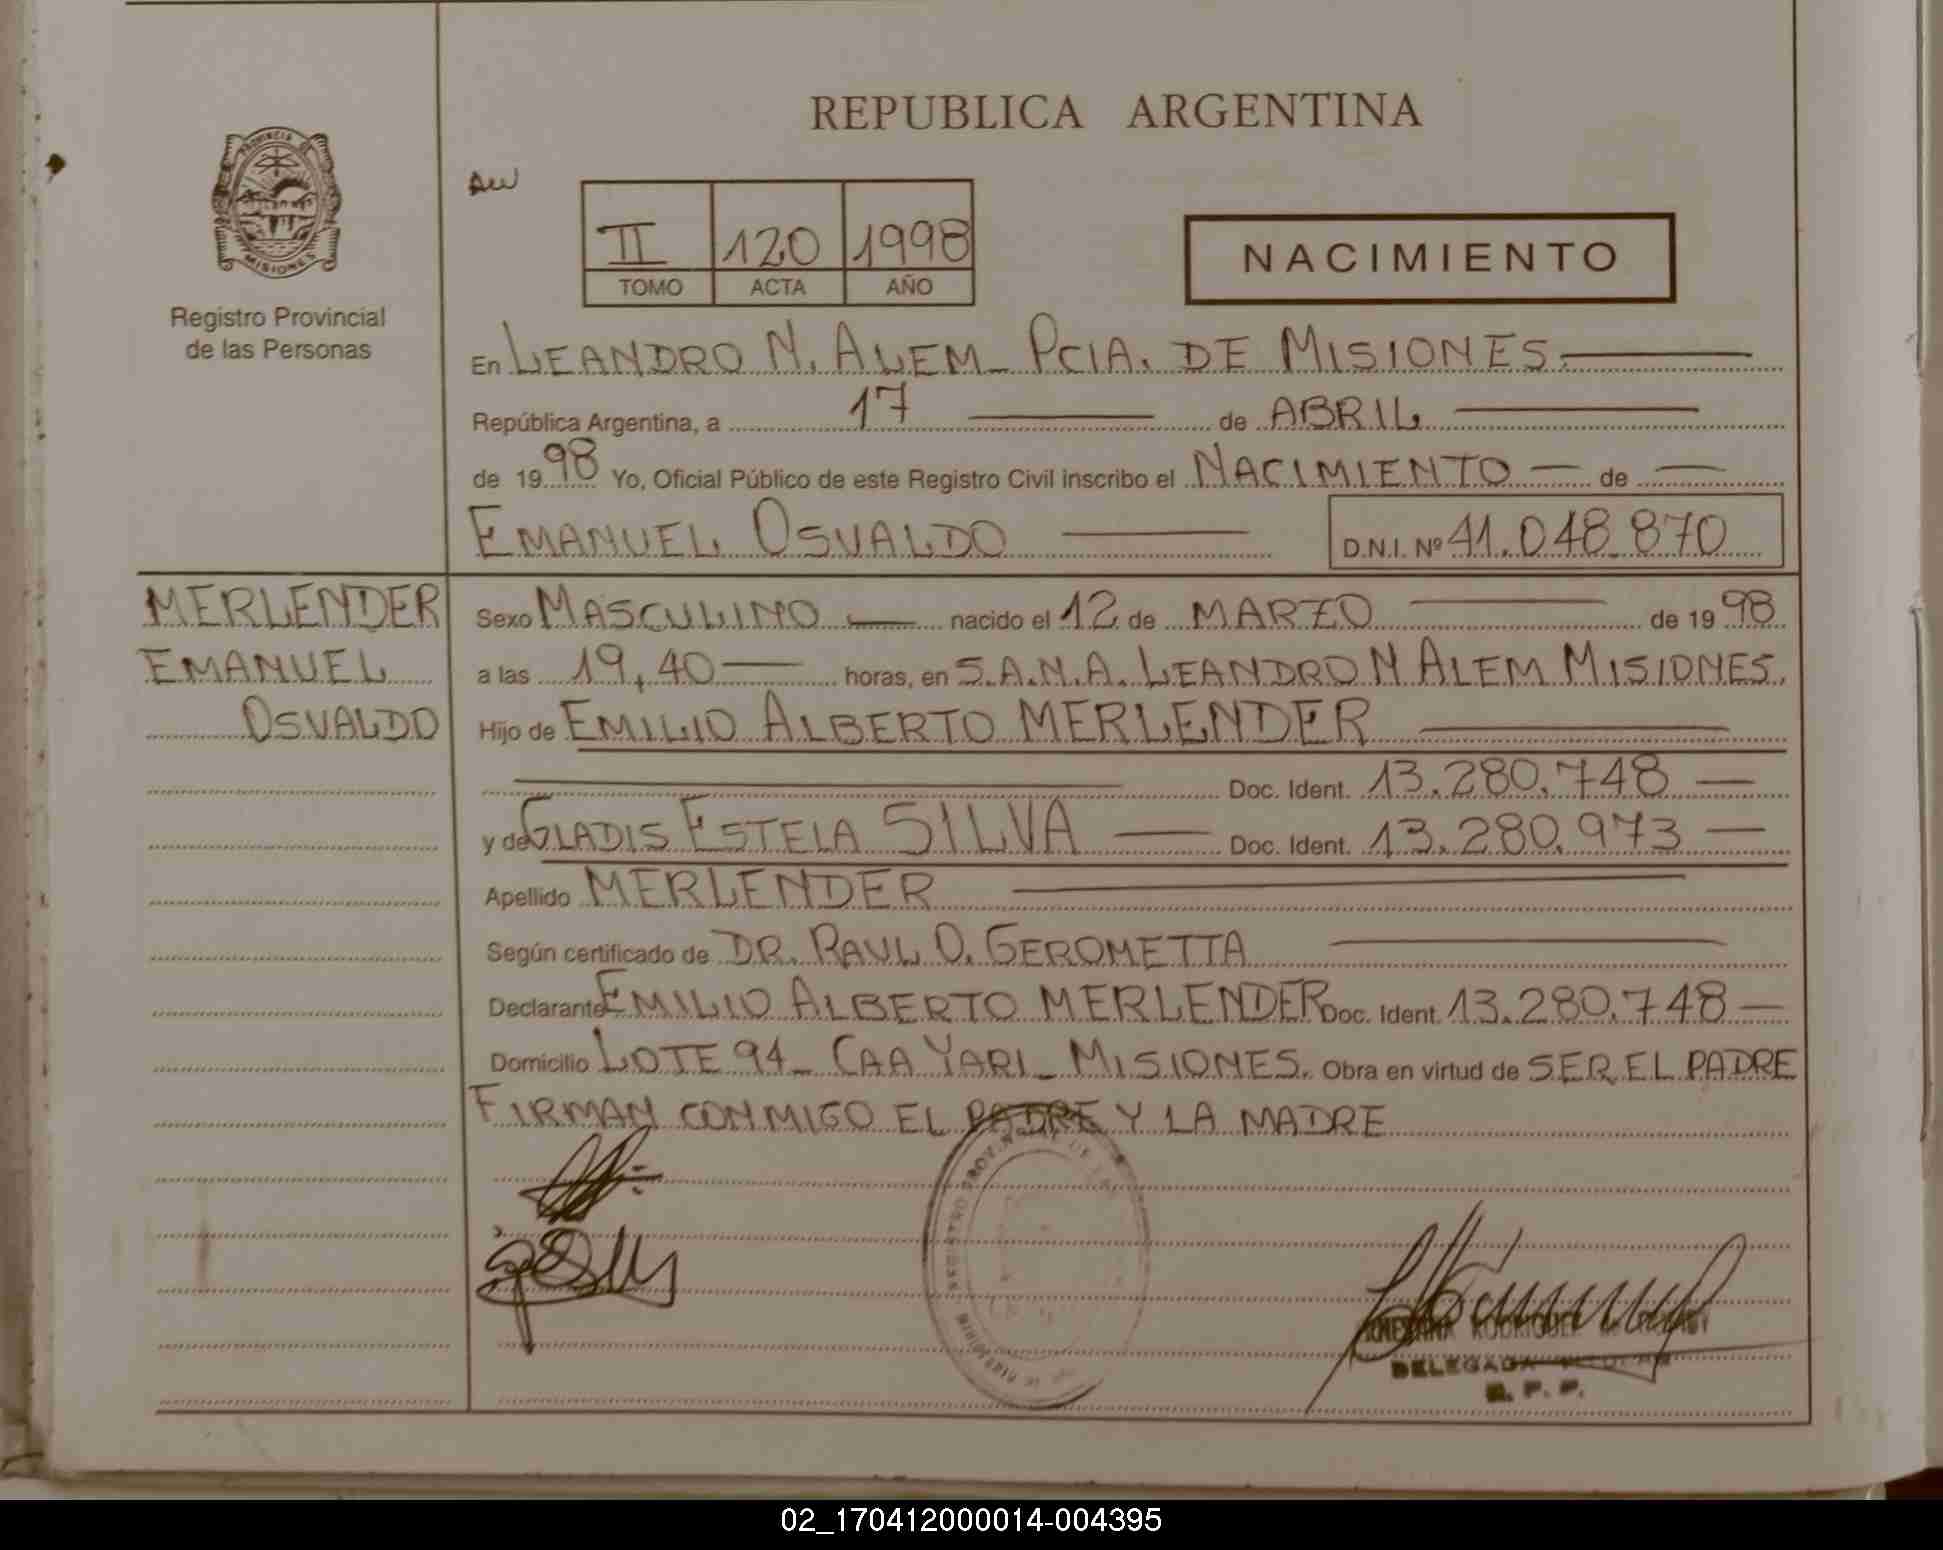 REPUBLICA ARGENTINA
PROVINCIA DE MISIONES
Registro Provincial
de las Personas
II 120 1998
TOMO ACTA AÑO
NACIMIENTO
En LEANDRO N. ALEM_ PCIA. DE MISIONES.
República Argentina, a 17 de ABRIL
de 1998 Yo, Oficial Público de este Registro Civil inscribo el NACIMIENTO de
EMANUEL OSVALDO D.N.I. Nº 41.048.870
MERLENDER
EMANUEL
OSVALDO
Sexo MASCULINO nacido el 12 de MARZO de 1998
a las 19,40 horas, en S.A.M.A. LEANDRO N ALEM MISIONES.
Hijo de EMILIO ALBERTO MERLENDER
Doc. Ident. 13.280.748
y de GLADIS ESTELA SILVA Doc. Ident. 13.280.973
Apellido MERLENDER
Según certificado de DR. RAUL O. GEROMETTA
Declarante EMILIO ALBERTO MERLENDER Doc. Ident. 13.280.748
Domicilio LOTE 94_ CAA YARI_ MISIONES. Obra en virtud de SER EL PADRE
FIRMAN CONMIGO EL PADRE Y LA MADRE
RODRIGUEZ
DELEGADA
R. P. P.
02_170412000014-004395